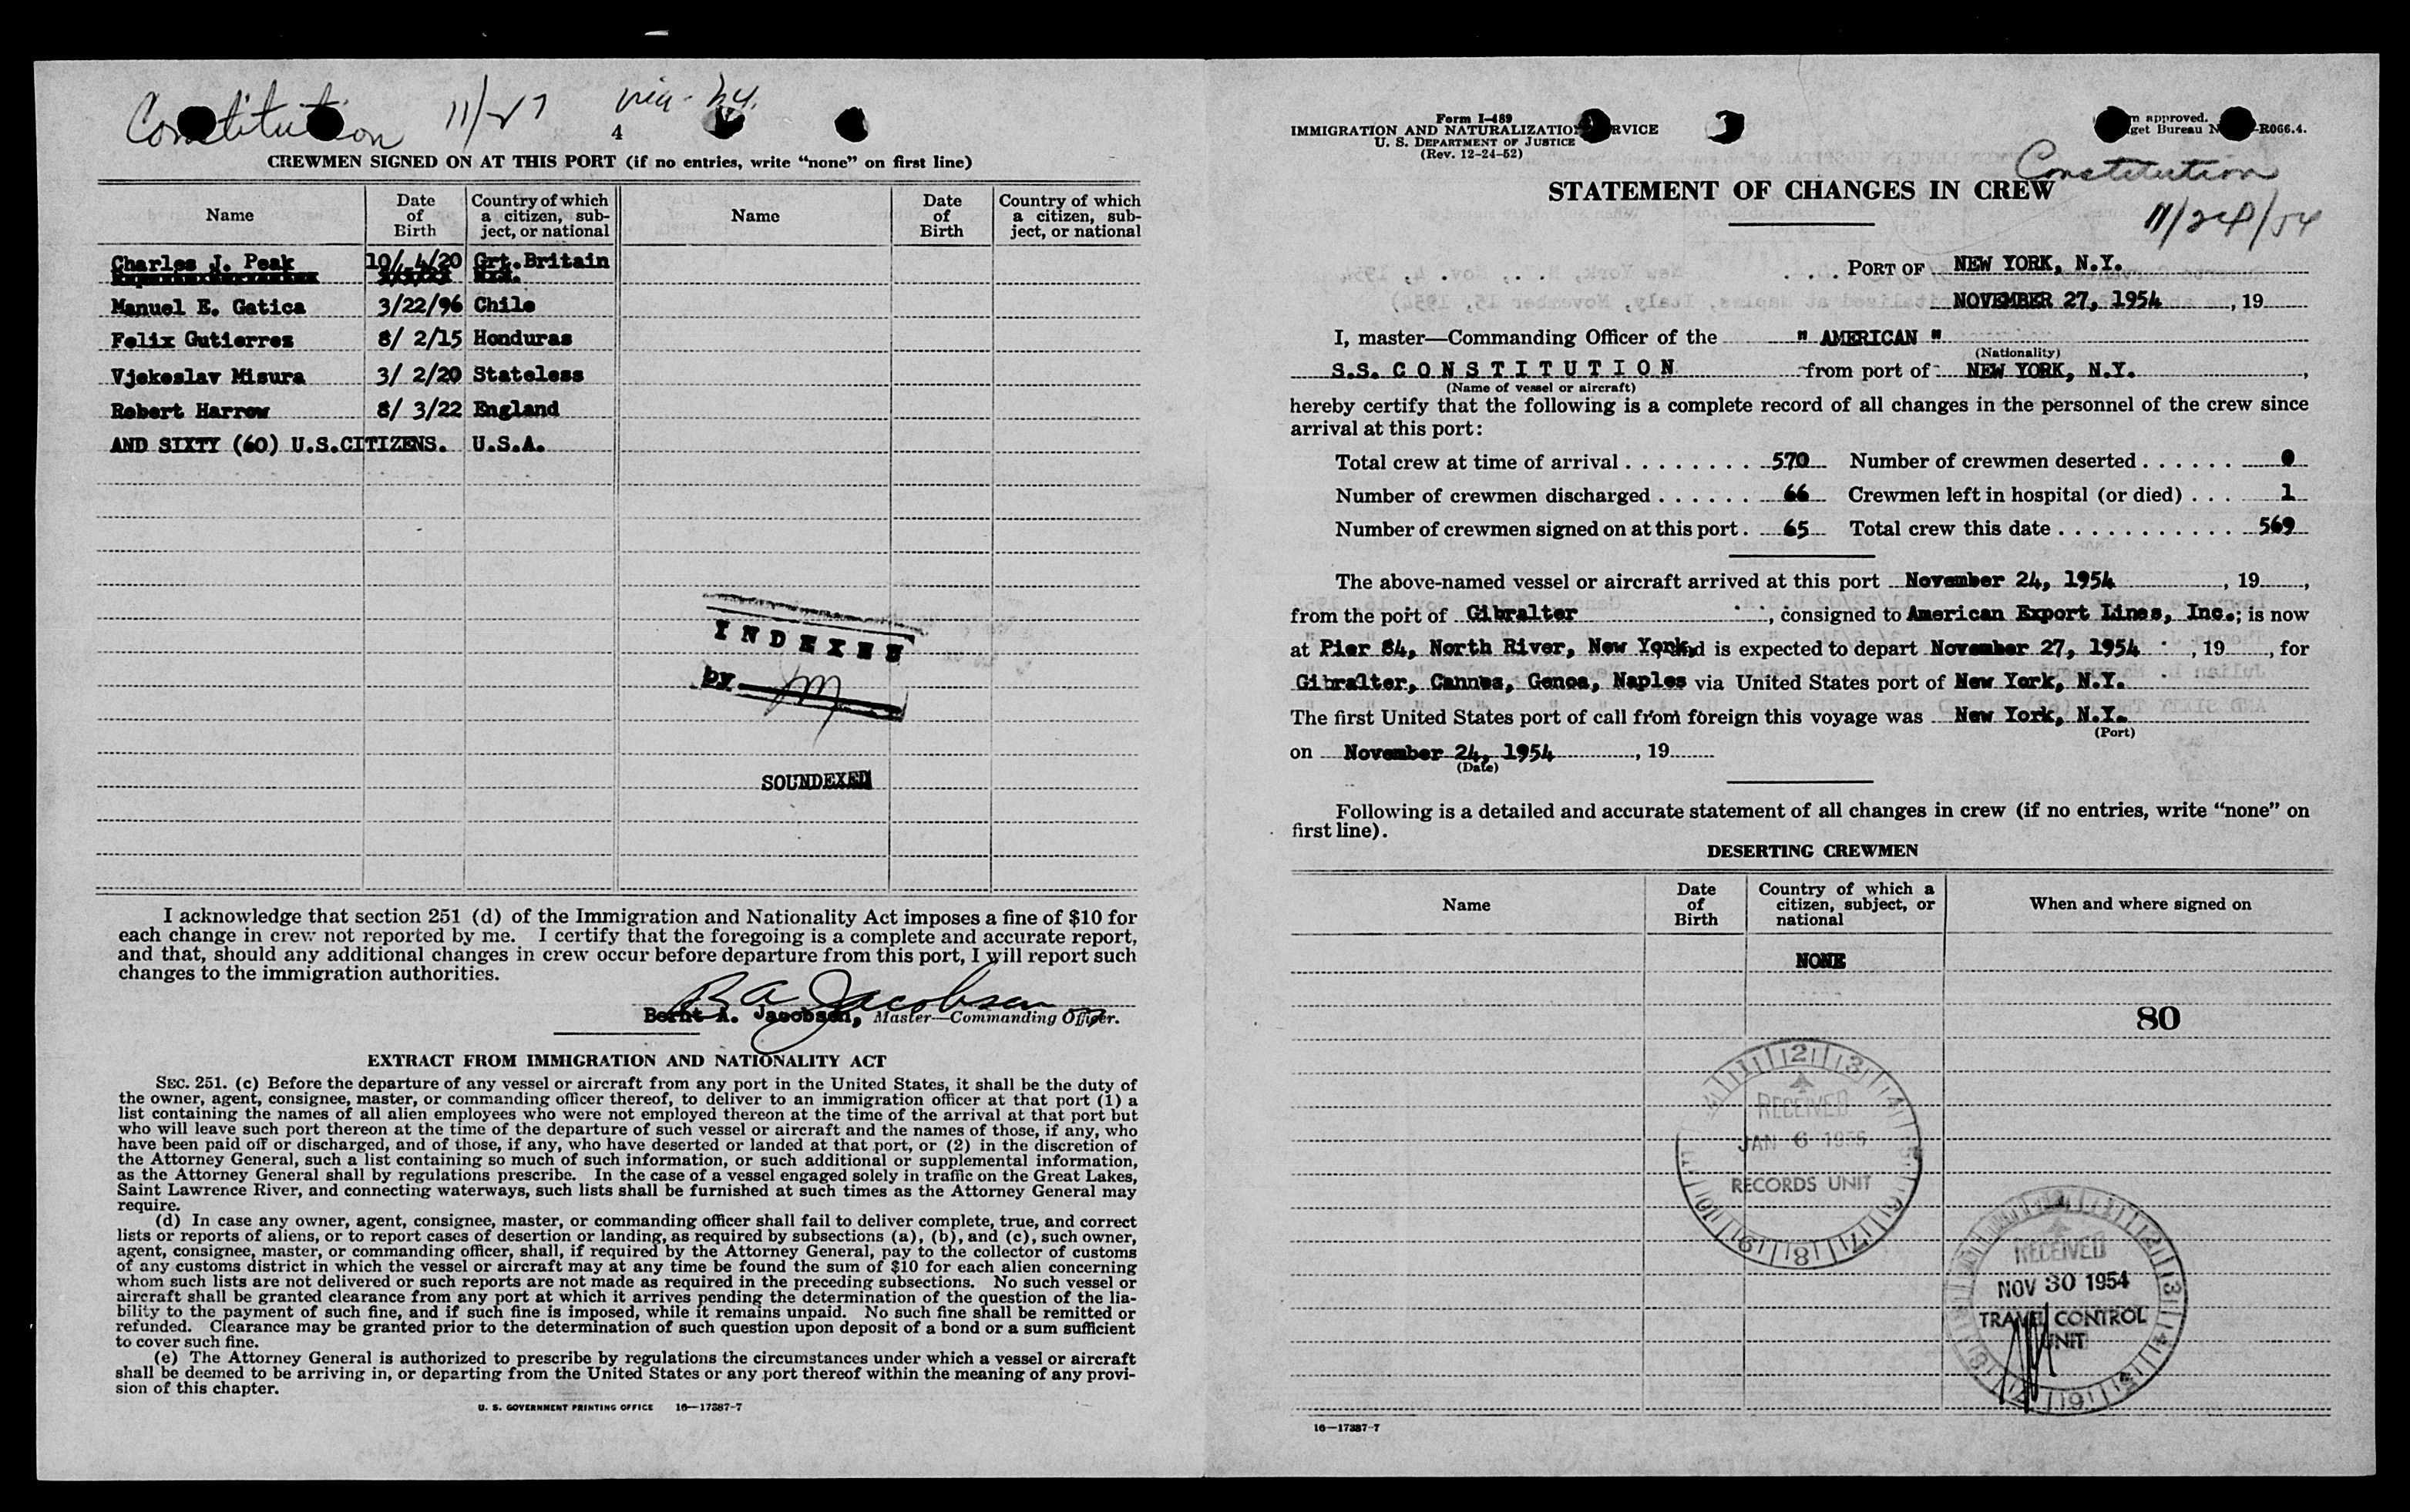 Constitution 11/27 via- N.Y.
4
CREWMEN SIGNED ON AT THIS PORT (if no entries, write “none” on first line)
Name Date of Birth Country of which a citizen, subject, or national Name Date of Birth Country of which a citizen, subject, or national
Charles J. Peak 10/ 4/20 Grt.Britain
Manuel E. Gatica 3/22/96 Chile
Felix Gutierrez 8/ 2/15 Honduras
Vjekoslav Misura 3/ 2/20 Stateless
Robert Harrow 8/ 3/22 England
AND SIXTY (60) U.S.CITIZENS. U.S.A.
INDEXED
by
SOUNDEXED
I acknowledge that section 251 (d) of the Immigration and Nationality Act imposes a fine of $10 for
each change in crew not reported by me. I certify that the foregoing is a complete and accurate report,
and that, should any additional changes in crew occur before departure from this port, I will report such
changes to the immigration authorities.
B A Jacobsen
Bernt A. Jacobsen, Master—Commanding Officer.
EXTRACT FROM IMMIGRATION AND NATIONALITY ACT
SEC. 251. (c) Before the departure of any vessel or aircraft from any port in the United States, it shall be the duty of
the owner, agent, consignee, master, or commanding officer thereof, to deliver to an immigration officer at that port (1) a
list containing the names of all alien employees who were not employed thereon at the time of the arrival at that port but
who will leave such port thereon at the time of the departure of such vessel or aircraft and the names of those, if any, who
have been paid off or discharged, and of those, if any, who have deserted or landed at that port, or (2) in the discretion of
the Attorney General, such a list containing so much of such information, or such additional or supplemental information,
as the Attorney General shall by regulations prescribe. In the case of a vessel engaged solely in traffic on the Great Lakes,
Saint Lawrence River, and connecting waterways, such lists shall be furnished at such times as the Attorney General may
require.
(d) In case any owner, agent, consignee, master, or commanding officer shall fail to deliver complete, true, and correct
lists or reports of aliens, or to report cases of desertion or landing, as required by subsections (a), (b), and (c), such owner,
agent, consignee, master, or commanding officer, shall, if required by the Attorney General, pay to the collector of customs
of any customs district in which the vessel or aircraft may at any time be found the sum of $10 for each alien concerning
whom such lists are not delivered or such reports are not made as required in the preceding subsections. No such vessel or
aircraft shall be granted clearance from any port at which it arrives pending the determination of the question of the lia-
bility to the payment of such fine, and if such fine is imposed, while it remains unpaid. No such fine shall be remitted or
refunded. Clearance may be granted prior to the determination of such question upon deposit of a bond or a sum sufficient
to cover such fine.
(e) The Attorney General is authorized to prescribe by regulations the circumstances under which a vessel or aircraft
shall be deemed to be arriving in, or departing from the United States or any port thereof within the meaning of any provi-
sion of this chapter.
U. S. GOVERNMENT PRINTING OFFICE 16—17387-7
Form I-489
IMMIGRATION AND NATURALIZATION SERVICE
U. S. DEPARTMENT OF JUSTICE
(Rev. 12-24-52)
approved.
Bureau -R066.4.
Constitution
STATEMENT OF CHANGES IN CREW
11/24/54
PORT OF NEW YORK, N.Y.
NOVEMBER 27, 1954, 19
I, master—Commanding Officer of the " AMERICAN "
(Nationality)
S.S. C O N S T I T U T I O N from port of NEW YORK, N.Y.,
(Name of vessel or aircraft)
hereby certify that the following is a complete record of all changes in the personnel of the crew since
arrival at this port:
Total crew at time of arrival . . . . . . . . 570 Number of crewmen deserted . . . . . . 0
Number of crewmen discharged . . . . . . 66 Crewmen left in hospital (or died) . . . 1
Number of crewmen signed on at this port . 65 Total crew this date . . . . . . . . . . . 569
The above-named vessel or aircraft arrived at this port November 24, 1954, 19,
from the port of Gibralter, consigned to American Export Lines, Inc.; is now
at Pier 84, North River, New York, and is expected to depart November 27, 1954, 19, for
Gibralter, Cannes, Genoa, Naples via United States port of New York, N.Y.
The first United States port of call from foreign this voyage was New York, N.Y.
(Port)
on November 24, 1954, 19
(Date)
Following is a detailed and accurate statement of all changes in crew (if no entries, write “none” on
first line).
DESERTING CREWMEN
Name Date of Birth Country of which a citizen, subject, or national When and where signed on
NONE
80
RECEIVED
JAN 6 1956
RECORDS UNIT
RECEIVED
NOV 30 1954
TRAVEL CONTROL
UNIT
16—17387-7